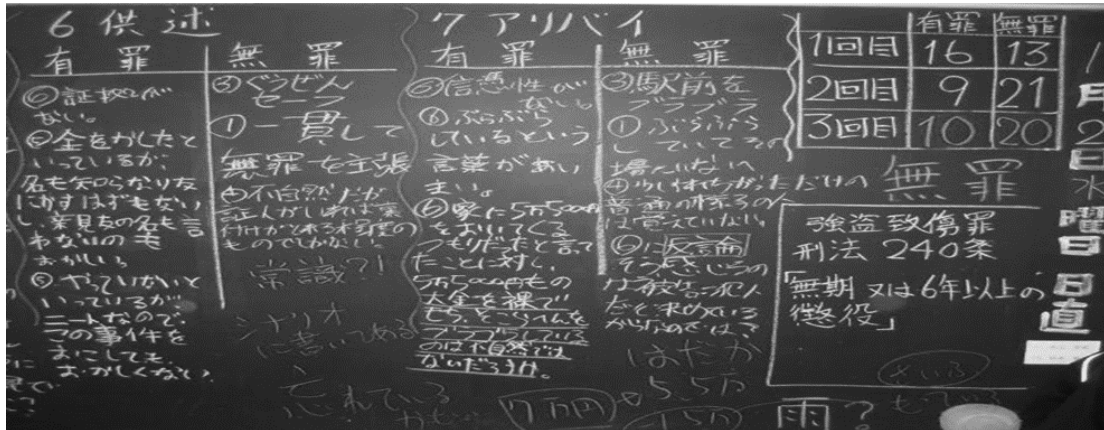 6 供述
有罪
⑥証拠が
ない。
②金をかしたと
いっているが、
名も知らない友
にかすはずもない
し、親友の名も言
わないのも
おかしい。
⑤やっていないと
いっているが
ニートなので、
この事件を
おこしても、
おかしくない。
無罪
③ぐうぜん
セーフ
①一貫して
無罪を主張
④不自然だが
証人がいれば裏
付けがとれる程度の
ものでしかない。
常識?!
シナリオ
に書いてある
忘れている
かも
7 アリバイ
有罪
⑤信憑性が
ない。
⑥ぶらぶら
しているという
言葉があい
まい。
⑥家に5万5000円
をおいてくる
つもりだったと言っ
たことに対し、
5万5000円もの
大金を裸で
もち、そこらへんを
ブラブラしている
のは不自然では
ないだろうか。
無罪
③駅前を
ブラブラ
①ぶらぶら
していてその
場にいない
④少しはちがっただけの
普通の様子のため
は覚えていない
⑥に反論
そう感じるの
は被告=犯人
だと決めている
からなのでは?
はだか
5.5万
7万円
1.5万
雨?
有罪 無罪
1回目 16 13
2回目 9 21
3回目 10 20
無罪
強盗致傷罪
刑法240条
「無期又は6年以上の
懲役」
さいふ
もっている
1月2日水曜日
日直